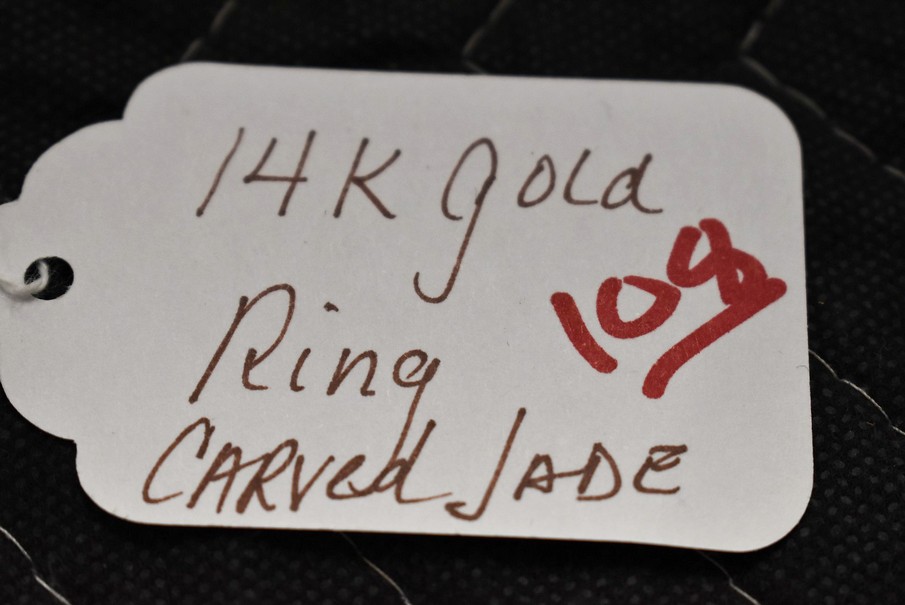 14K gold
Ring
CARVed JADE
108